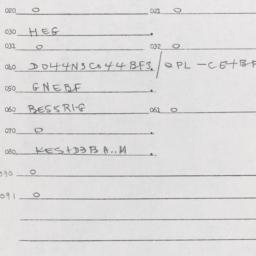 020 0 021 0
030 HEG
031 0 032 0
040 DO44N3C044BF3. / OPL-CE+BF
050 GNEBF
060 BESSRIG 061 0
070 0
080 KES+D3BA..M
090 0
091 0